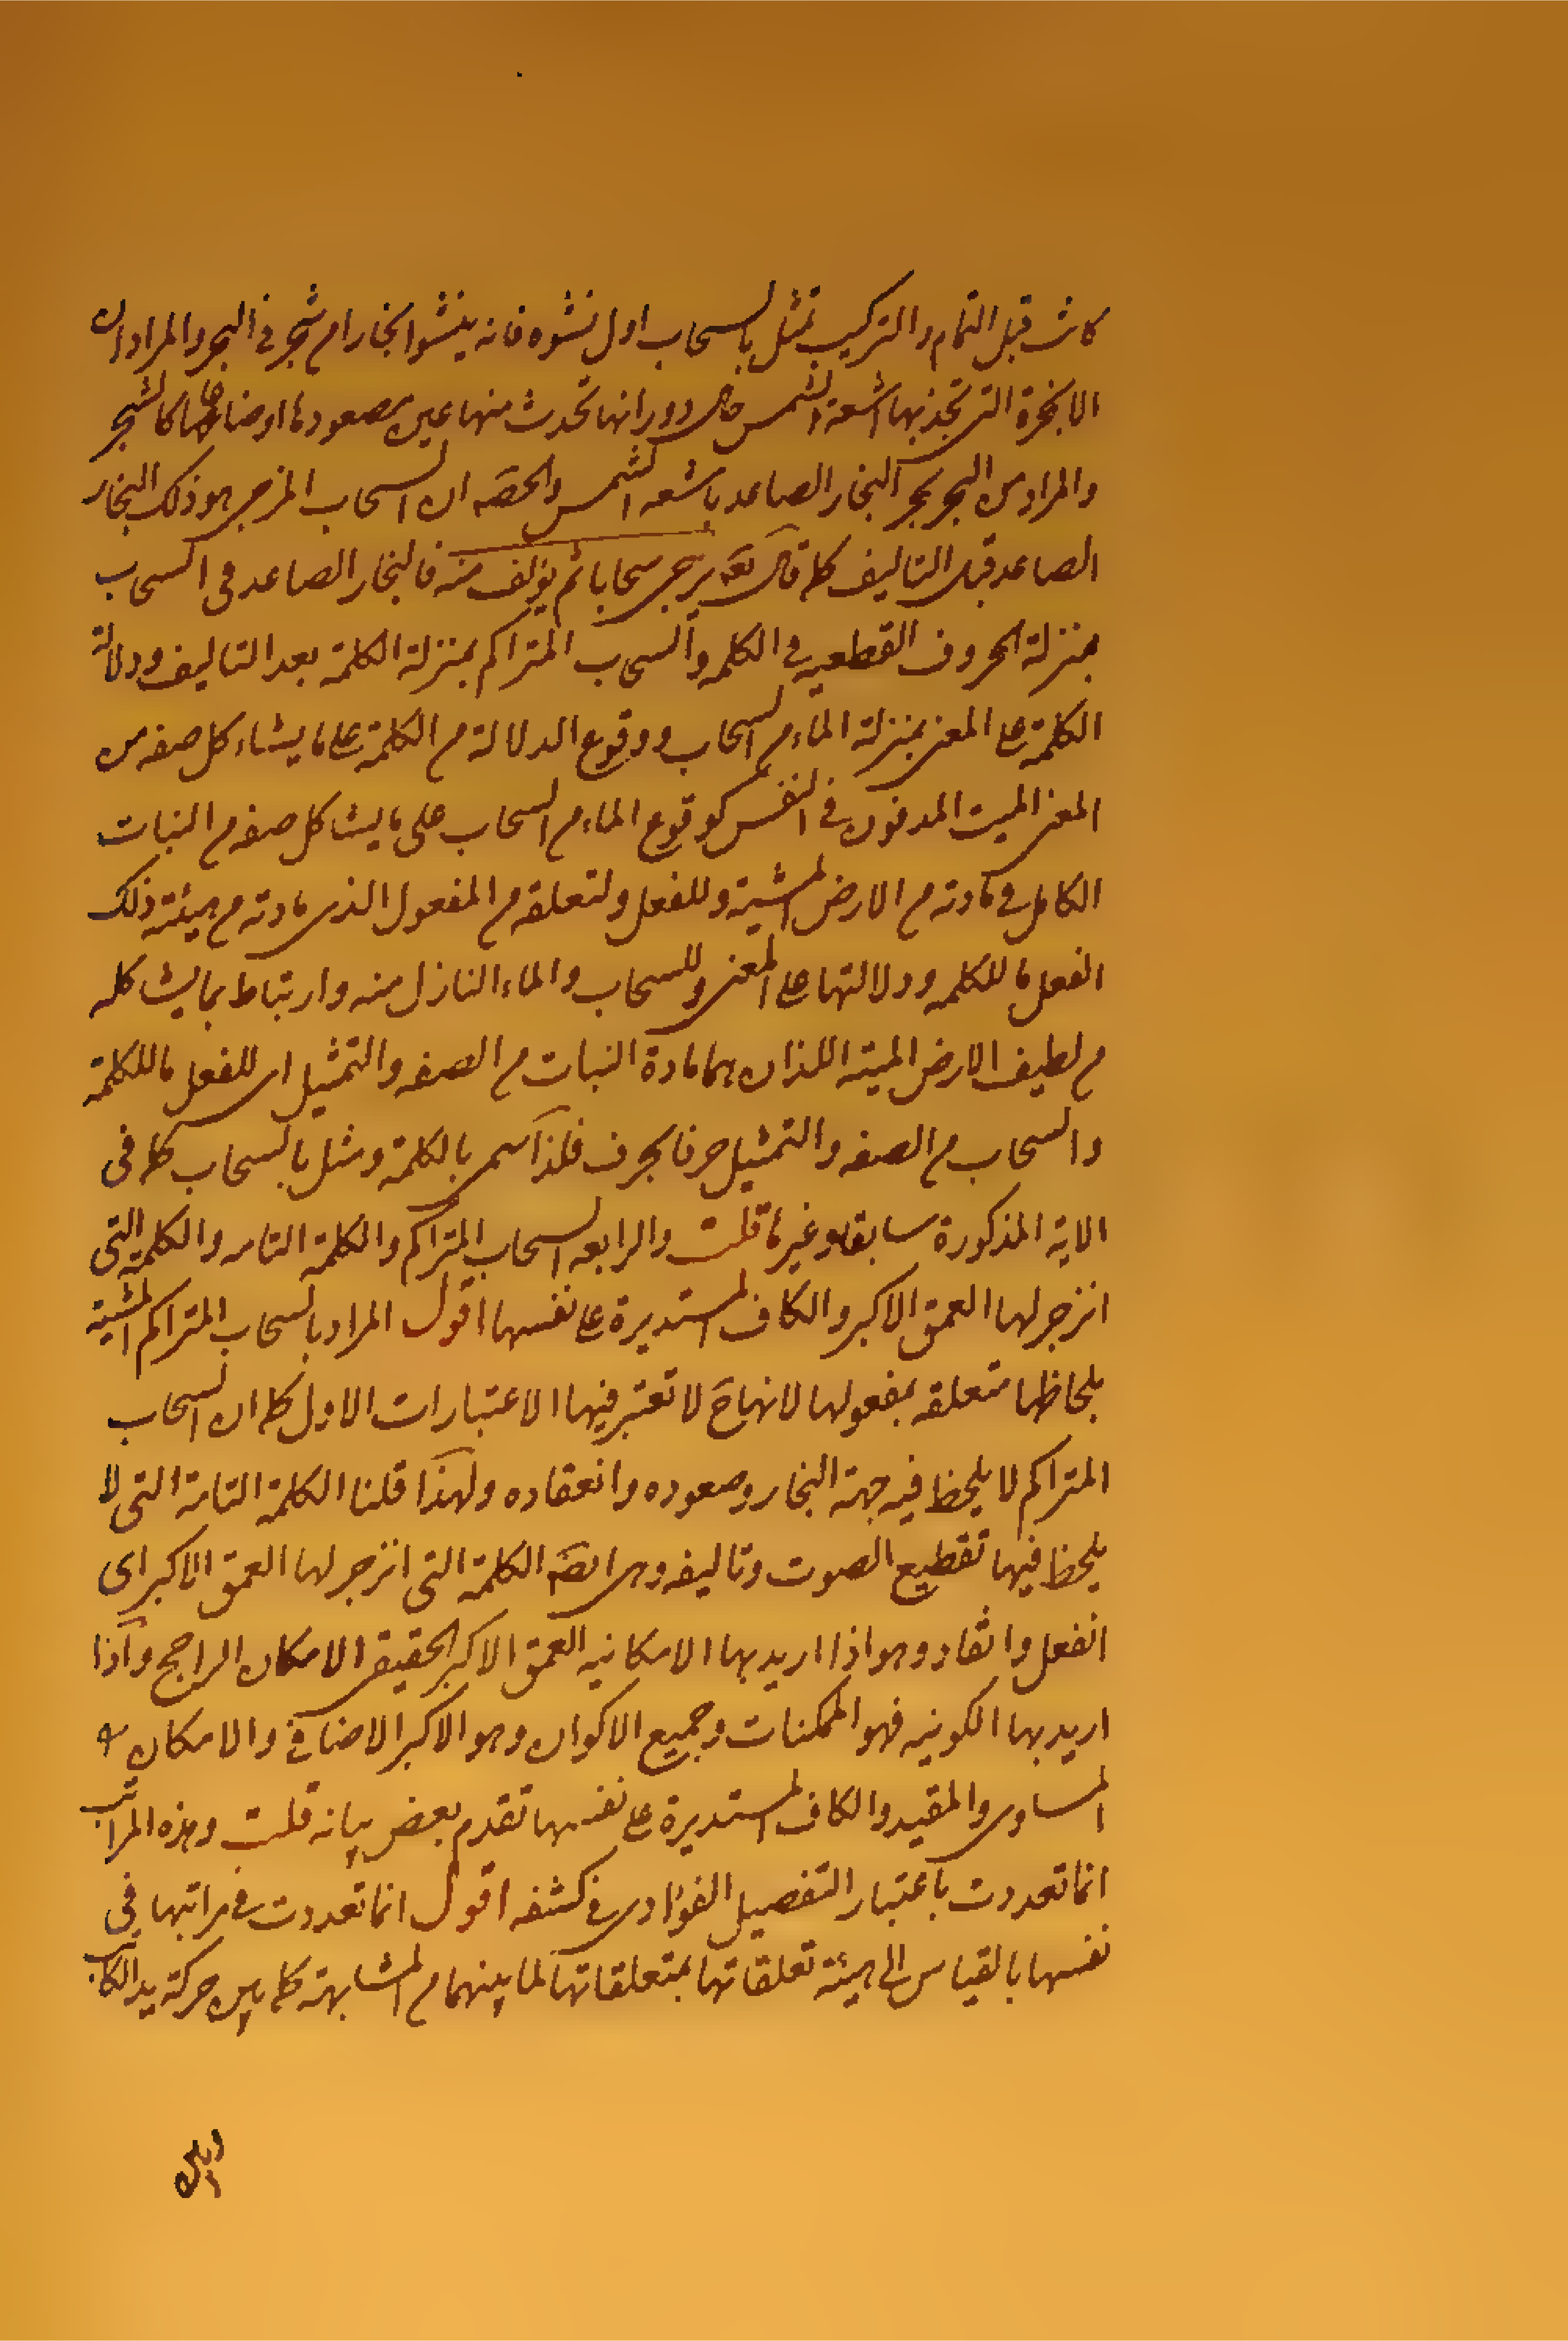 كانت قبل التمام والتركيب تمثل بالسحاب اول نشوه فانه ينشوا بخارا من شجر في البحر والمراد ان
الابخرة التي تجذبها اشعة الشمس حال دورانها تحدث منها عين صعودها اوضاعها كالشجر
والمراد من البحر بحر البخار الصاعد باشعه الشمس والحصه ان السحاب المزجى هو ذلك البخار
الصاعد قبل التاليف كما قال تعه يزجى سحابا ثم يؤلف منه فالبخار الصاعد في السحاب
بمنزلة الحروف القطعيه في الكلمه والسحاب المتراكم بمنزلة الكلمة بعد التاليف ودلالة
الكلمة على المعنى بمنزلة الماء من السحاب ووقوع الدلالة من الكلمة على ما يشاء كل صفه من
المعنى الميت المدفون في النفس كوقوع الماء من السحاب على ما يشاكل صفه من النبات
الكامل في مادته من الارض المشية وللفعل ولتعلقه من المفعول الذى مادته من هيئة ذلك
الفعل ما للكلمه ودلالتها على المعنى وللسحاب والماء النازل منه وارتباط بما يشاكله
من لطيف الارض الميته اللذان هما مادة النبات من الصفه والتمثيل اى للفعل ما للكلمة
والسحاب من الصفه والتمثيل حرفا بحرف فلذا سمى بالكلمة ومثل بالسحاب كما في
الاية المذكورة سابقا وغيرها قلت والرابعه السحاب المتراكم والكلمة التامه والكلمة التي
انزجر لها العمق الاكبر والكاف المستديرة على نفسها اقول المراد بالسحاب المتراكم المشية
بلحاظها متعلقه بمفعولها لانها ح لا تعتبر فيها الاعتبارات الاول كما ان السحاب
المتراكم لا يلحظ فيه جهة البخار وصعوده وانعقاده ولهذا قلنا الكلمة التامة التي لا
يلحظ فيها تقطيع الصوت وتاليفه وهى ايضه الكلمة التي انزجر لها العمق الاكبر اى
انفعل وانقاد وهو اذا اريد بها الامكانيه العمق الاكبر الحقيقى الامكان الراجح واذا
اريد بها الكونيه فهو الممكنات وجميع الاكوان وهو الاكبر الاضافي والامكان
المساوى والمقيد والكاف المستديرة على نفسها تقدم بعض بيانه قلت وهذه المراتب
انما تعددت باعتبار التفصيل الفؤادى في كشفه اقول انما تعددت في مراتبها في
نفسها بالقياس الى هيئة تعلقاتها بمتعلقاتها لما بينهما من المشابهة كما بين حركة يد الكاتب